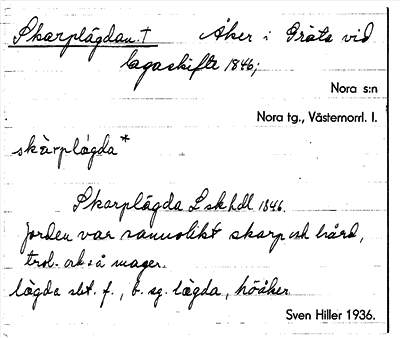 Skarplägdan † Åker i Gräta vid
lagaskifte 1846;
Nora s:n
Nora tg., Västernorrl. l.
skàrplǻgda*
Skarplägda L skhdl 1846.
Jorden var sannolikt skarp och hård,
trol. också mager.
lägda sbt. f., b. sg. lægda, höåker
Sven Hiller 1936.